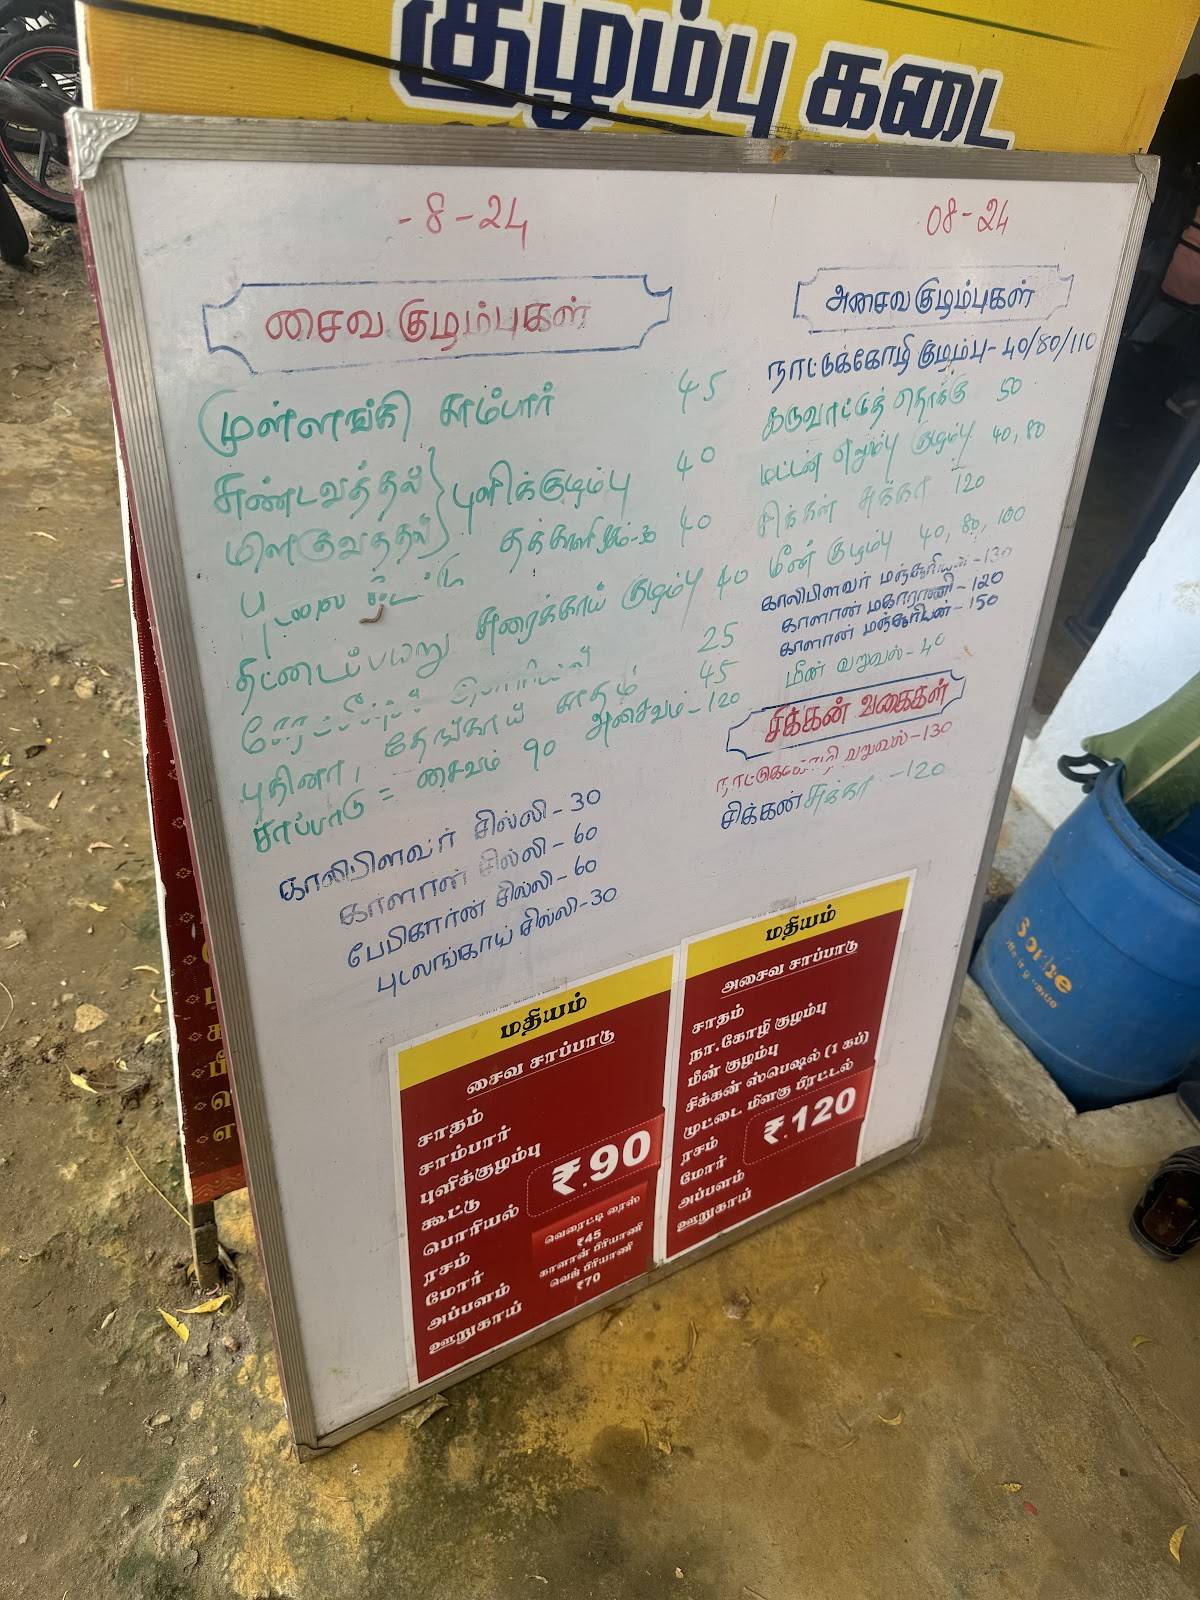 குழம்பு கடை
-8-24
சைவ குழம்புகள்
முள்ளங்கி சாம்பார் 45
சுண்டவத்தல் } புளிக்குழம்பு 40
மிளகுவத்தல்
தக்காளி 40
தட்டைப்பயறு சுரைக்காய் குழம்பு 40
25
புதினா, தேங்காய் சாதம் 45
சாப்பாடு = சைவம் 90 அசைவம் - 120
காலிபிளவர் சில்லி - 30
காளான் சில்லி - 60
பேபிகார்ன் சில்லி - 60
புடலங்காய் சில்லி - 30
08-24
அசைவ குழம்புகள்
நாட்டுக்கோழி குழம்பு - 40/80/110
கருவாட்டுத் தொக்கு 50
மட்டன் எலும்பு குழம்பு 40, 80
சிக்கன் சுக்கா 120
மீன் குழம்பு 40, 80, 100
காலிபிளவர் மஞ்சூரியன் - 130
காளான் மகாராணி - 120
காளான் மஞ்சூரியன் - 150
மீன் வறுவல் - 40
சிக்கன் வகைகள்
நாட்டுக்கோழி வறுவல் - 130
சிக்கன் சுக்கா - 120
மதியம்
சைவ சாப்பாடு
சாதம்
சாம்பார்
புளிக்குழம்பு
கூட்டு
பொரியல்
ரசம்
மோர்
அப்பளம்
ஊறுகாய்
₹.90
வெரைட்டி ரைஸ்
₹45
காளான் பிரியாணி
வெஜ் பிரியாணி
₹70
மதியம்
அசைவ சாப்பாடு
சாதம்
நா.கோழி குழம்பு
மீன் குழம்பு
சிக்கன் ஸ்பெஷல் (1 கப்)
முட்டை மிளகு பிரட்டல்
ரசம்
மோர்
அப்பளம்
ஊறுகாய்
₹.120